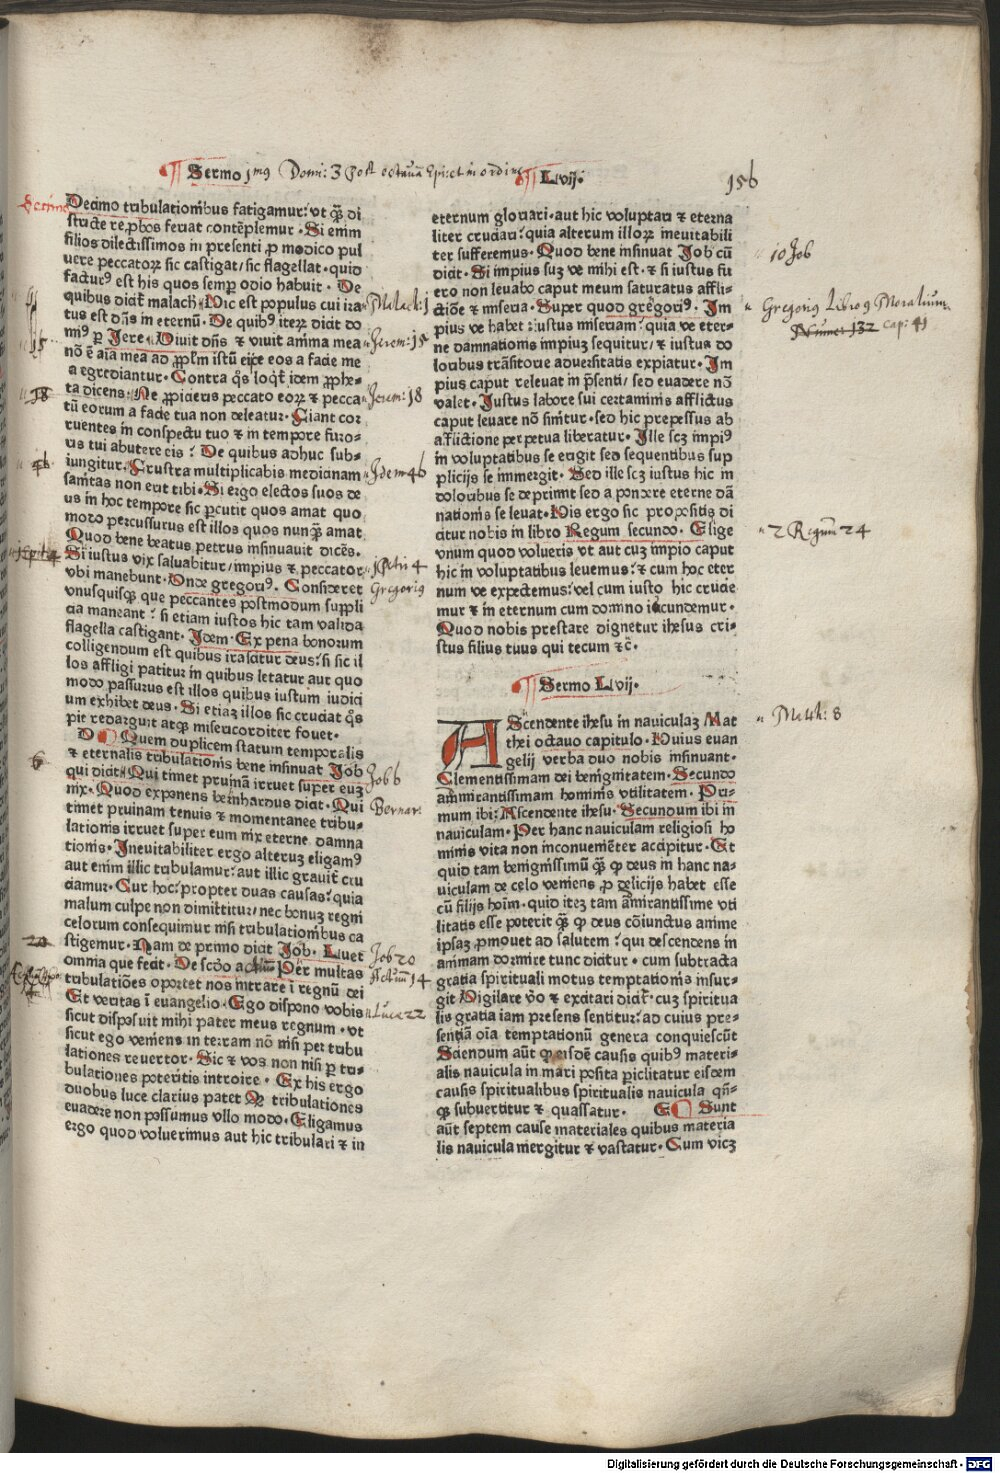 Sermo jmus Domi: 3 Post octauā Epi: et in ordine Lvij.
156
Decimo tribulationibus fatigamur: vt qͣ di
stricte re ꝓbos feriat contēplemur. Si enim
filios dilectissimos in presenti ꝓ modico pul
uere peccatoꝝ sic castigat/sic flagellat. quid
facturꝰ est his quos semꝑ odio habuit. De
quibus dicit malach. Hic est populus cui ira
tus est dn̄s in eternū. De quibꝰ iteꝝ dicit do
minꝰ ꝑ Jere. Viuit dn̄s & viuit anima mea
nō ē aīa mea ad ꝓp̄lm istū eijce eos a facie me
a egrediantur. Contra q̄s loqt̄ idem ꝓphe-
ta dicens. Ne ꝓpicieris peccato eoꝝ & pecca
tū eorum a facie tua non deleatur. Fiant cor
ruentes in conspectu tuo & in tempore furo-
ris tui abutere eis? De quibus adhuc sub-
iungitur. Frustra multiplicabis medicinam
sanitas non erit tibi. Si ergo electos suos de
us in hoc tempore sic ꝑcutit quos amat quo
modo percussurus est illos quos nunqͣ amat
Quod bene beatus petrus insinuauit dicēs.
Si iustus vix saluabitur/impius & peccator
vbi manebunt. Vnde gregoriꝰ. Consideret
vnusquisqꝫ que peccantes postmodum suppli
cia maneant? si etiam iustos hic tam valida
flagella castigant. Idem. Ex pena bonorum
colligendum est quibus irascitur deus: si sic il
los affligi patitur in quibus letatur aut quo
modo passurus est illos quibus iustum iudici
um exhibet deus. Si etiaꝫ illos sic cruciat q̄s
pie redarguit atqꝫ misericorditer fouet.
D Quem duplicem statum temporalis
& eternalis tribulationis bene insinuat Job
qui dicit. Qui timet pruinā irruet super euꝫ
nix. Quod exponens bernhardus dicit. Qui
timet pruinam tenuis & momentanee tribu-
lationis irruet super eum nix eterne damna
tionis. Ineuitabiliter ergo alteruꝫ eligamꝰ
aut enim illic tribulamur: aut illic grauit̄ cru
ciamur. Cur hoc: propter duas causas: quia
malum culpe non dimittitur/nec bonuꝫ regni
celorum consequimur nisi tribulationibus ca
stigemur. Nam de primo dicit Job. Luet
omnia que fecit. De scdo Per multas
tribulatiōes oportet nos intrare ī regnū dei
Et veritas ī euangelio. Ego dispono vobis
sicut disposuit mihi pater meus regnum. vt
sicut ego veniens in terram nō nisi per tribu
lationes reuertor. Sic & vos non nisi ꝑ tri-
bulationes poteritis introire. Ex his ergo
duobus luce clarius patet qꝫ tribulationes
euadere non possumus vllo modo. Eligamus
ergo quod voluerimus aut hic tribulari & in
Malach: 1
Jerem: 15
Jerem: 18
Idem 46
1 Petri 4
Gregorius
Job 6
Bernar:
Job 20
Actuum 14
Lucæ 22
eternum gloriari. aut hic voluptari & eterna
liter cruciari: quia alterum illoꝝ ineuitabili
ter sufferemus. Quod bene insinuat Job cū
dicit. Si impius fuꝫ ve mihi est. & si iustus fu
ero non leuabo caput meum saturatus affli-
ctiōe & miseria. Super quod gregoriꝰ. Im
pius ve habet iustus miseriam: quia ve eter-
ne damnationis impiuꝫ sequitur/& iustus do
loribus trāsitorie aduersitatis expiatur. Im
pius caput releuat in p̄senti/ sed euadere nō
valet. Justus labore sui certaminis afflictus
caput leuare nō sinitur. sed hic prepessus ab
afflictione perpetua liberatur. Ille scꝫ impiꝰ
in voluptatibus se erigit sed sequentibus sup
plicijs se immergit. Sed ille scꝫ iustus hic in
doloribus se deprimit sed a pondere eterne dā
nationis se leuat. His ergo sic propositis di
citur nobis in libro Regum secundo. Elige
vnum quod volueris vt aut cuꝫ impio caput
hic in voluptatibus leuemus: & cum hoc eter
num ve expectemus: vel cum iusto hic crucie
mur & in eternum cum domino iocundemur.
Quod nobis prestare dignetur ihesus cri-
stus filius tuus qui tecum &c̄.
Sermo Lvij.
AScendente ihesu in nauiculaꝫ Mat
thei octauo capitulo. Huius euan
gelij verba duo nobis insinuant.
Clementissimam dei benignitatem. Secundo
ammirantissimam hominis vtilitatem. Pri-
mum ibi: Ascendente ihesu. Secundum ibi in
nauiculam. Per hanc nauiculam religiosi ho
minis vita non inconueniēter accipitur. Et
quid tam benignissimū qͣ ꝙ deus in hanc na-
uiculam de celo veniens ꝓ delicijs habet esse
cū filijs hoīm. quid iteꝫ tam āmirantissime vti
litatis esse poterit qͣ ꝙ deus cōiunctus anime
ipsaꝫ ꝓmouet ad salutem: qui descendens in
animam dormire tunc dicitur. cum subtracta
gratia spirituali motus temptationis insur-
git Vigilare vo & excitari dicit̄. cuꝫ spiritua
lis gratia iam presens sentitur: ad cuius pre-
sentiā oīa temptationū genera conquiescūt
Sciendum aūt ꝙ eisdē causis quibꝰ materi-
alis nauicula in mari posita ꝑiclitatur eisdem
causis spiritualibus spiritualis nauicula qn̄-
qꝫ subuertitur & quassatur. E Sunt
aūt septem cause materiales quibus materia
lis nauicula mergitur & vastatur. Cum vicꝫ
10 Job
Gregorius Libro 9 Moralium
cap: 41
2 Regum 24
Matth: 8
Digitalisierung gefördert durch die Deutsche Forschungsgemeinschaft - DFG